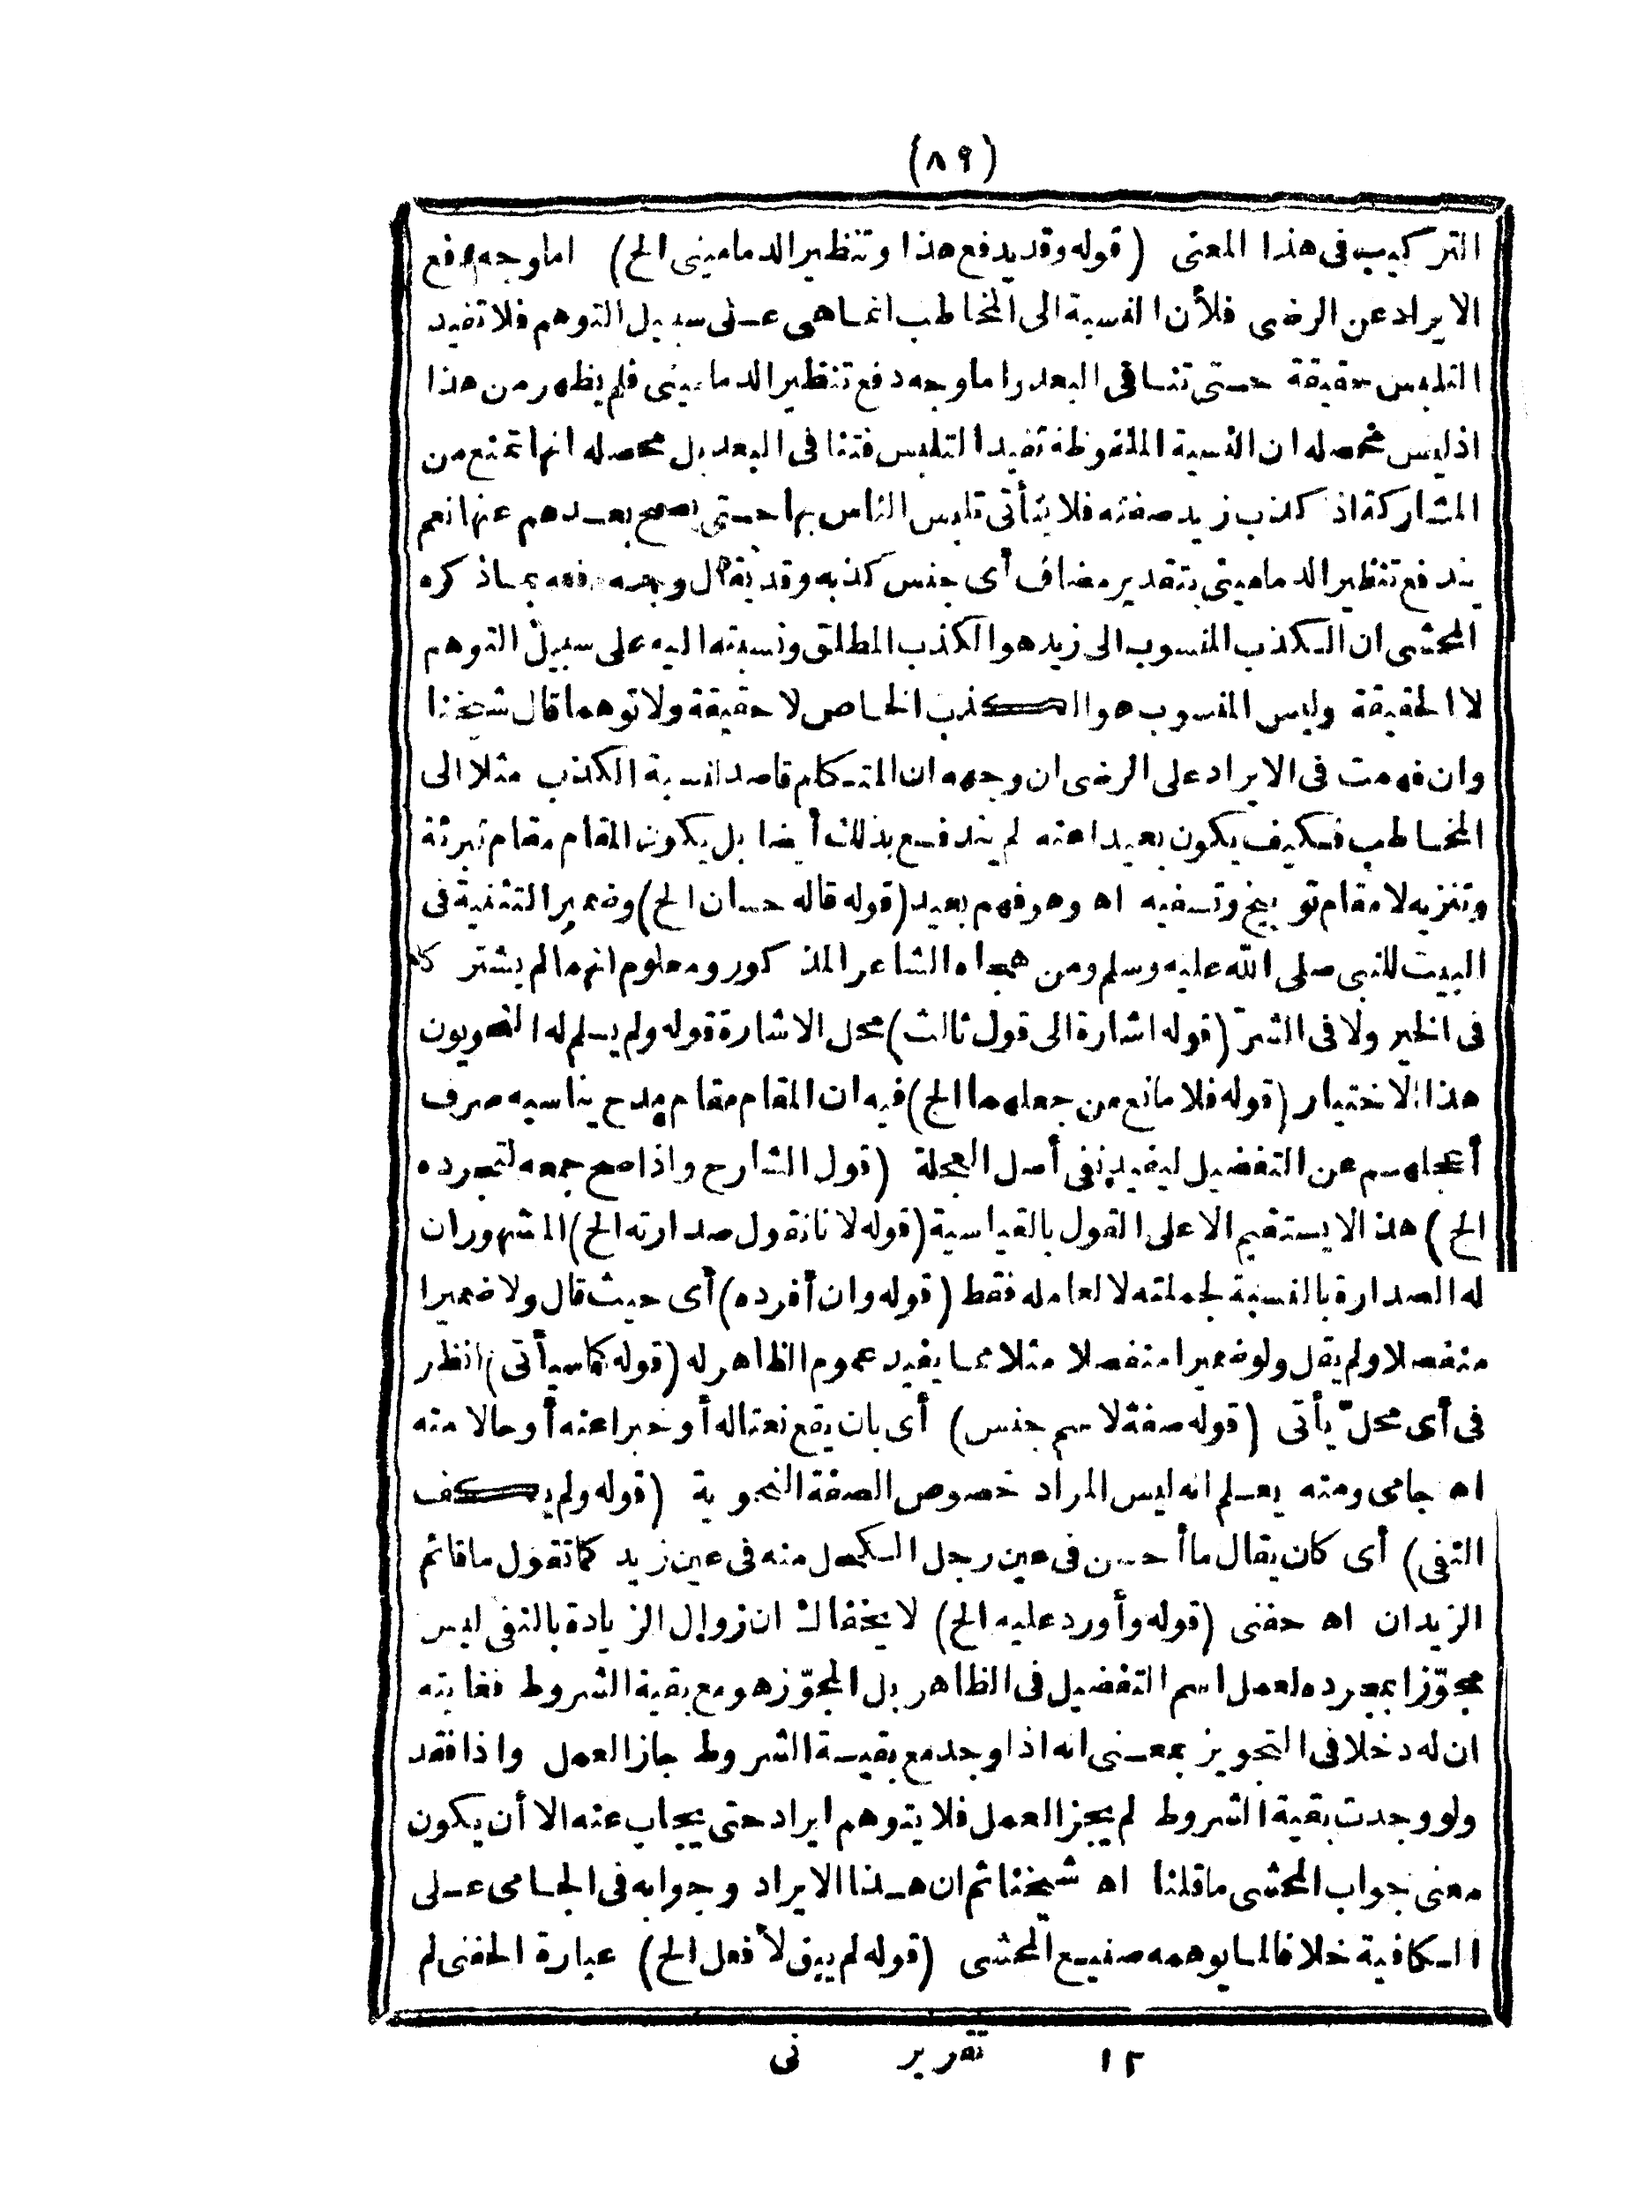 (٨٩)
التركيب في هذا المعنى (قوله وقد يدفع هذا وتنظير الدماميني الخ) اما وجه دفع
الايراد عن الرضى فلأن النسبة الى المخاطب انما هى على سبيل التوهم فلا تفيد
التلبس حقيقة حتى تنافى البعد واما وجه دفع تنظير الدمامينى فلم يظهر من هذا
اذ ليس محصله ان النسبة الملفوظة تفيد التلبس فتنافى البعد بل محصله انها تمنع من
المشاركة اذ كذب زيد صفته فلا يتأتى تلبس الناس بها حتى يصح بعدهم عنها نعم
يندفع تنظير الدمامينى بتقدير مضاف أى جنس كذبه وقد يقال وجه دفعه بما ذكره
المحشى ان الكذب المنسوب الى زيد هو الكذب المطلق ونسبته اليه على سبيل التوهم
لا الحقيقة وليس المنسوب هو الكذب الخاص لا حقيقة ولا توهما قال شيخنا
وان فهمت فى الايراد على الرضى ان وجهه ان المتكلم قاصد لنسبة الكذب مثلا الى
المخاطب فكيف يكون بعيدا عنه لم يندفع بذلك أيضا بل يكون المقام مقام تبرئة
وتنزيه لا مقام توبيخ وتسفيه اه وهو فهم بعيد (قوله قاله حسان الخ) وضمير التثنية فى
البيت للنبى صلى الله عليه وسلم ومن هجاه الشاعر المذكور ومعلوم انهما لم يشتركا
فى الخير ولا فى الشرّ (قوله اشارة الى قول ثالث) محل الاشارة قوله ولم يسلم له النحويون
هذا الاختيار (قوله فلا مانع من جعلهما الخ) فيه ان المقام مقام مدح يناسبه صرف
أعجلهم عن التفضيل ليفيد نفى أصل العجلة (قول الشارح واذا صح جمعه لتجرده
الخ) هذا لا يستقيم الا على القول بالقياسية (قوله لانا نقول صدارته الخ) المشهور ان
له الصدارة بالنسبة لجملته لا لعامله فقط (قوله وان أفرده) أى حيث قال ولا ضميرا
منفصلا ولم يقل ولو ضميرا منفصلا مثلا مما يفيد عموم الظاهر له (قوله كما سيأتى) انظر
فى أى محلّ يأتى (قوله صفة لاسم جنس) أى بان يقع نعتا له أو خبرا عنه أو حالا منه
اه جامى ومنه يعلم انه ليس المراد خصوص الصفة النحوية (قوله ولم يكف
النفى) أى كان يقال ما أحسن فى عين رجل الكحل منه فى عين زيد كما تقول ما قائم
الزيدان اه حفنى (قوله وأورد عليه الخ) لا يخفاك ان زوال الزيادة بالنفى ليس
مجوّزا بمجرده لعمل اسم التفضيل فى الظاهر بل المجوّز هو مع بقية الشروط فغايته
ان له دخلا فى التجويز بمعنى انه اذا وجد مع بقية الشروط جاز العمل واذا فقد
ولو وجدت بقية الشروط لم يجز العمل فلا يتوهم ايراد حتى يجاب عنه الا أن يكون
معنى جواب المحشى ما قلنا اه شيخنا ثم ان هذا الايراد وجوابه فى الجامى على
الكافية خلافا لما يوهمه صنيع المحشى (قوله لم يبق لأفعل الخ) عبارة الحفنى لم
١٢ تقرير نى